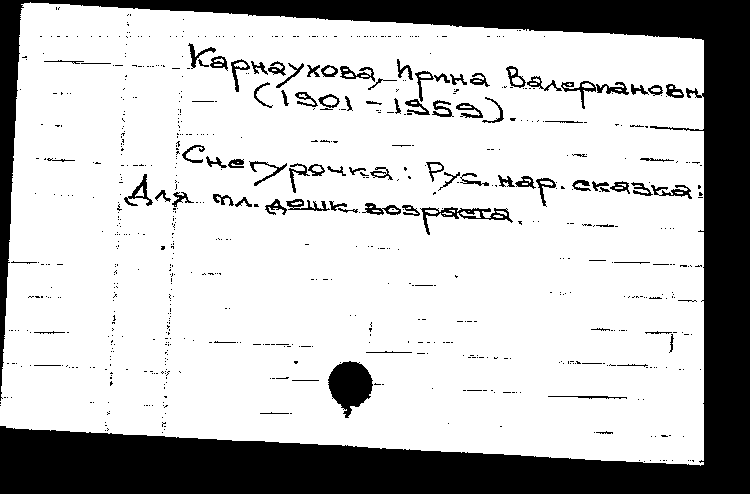 Карнаухова, Ирина Валериановн
(1901-1959).
Снегурочка: Рус. нар. сказка:
Для мл. дошк. возраста.